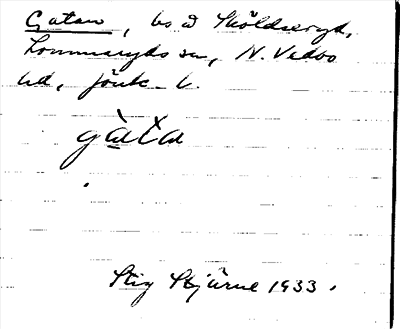 Gatan, bs å Sköldseryd,
Lommaryds sn, N. Vedbo
hd, Jönk. l.
gàta
Stig Stjärne 1933.